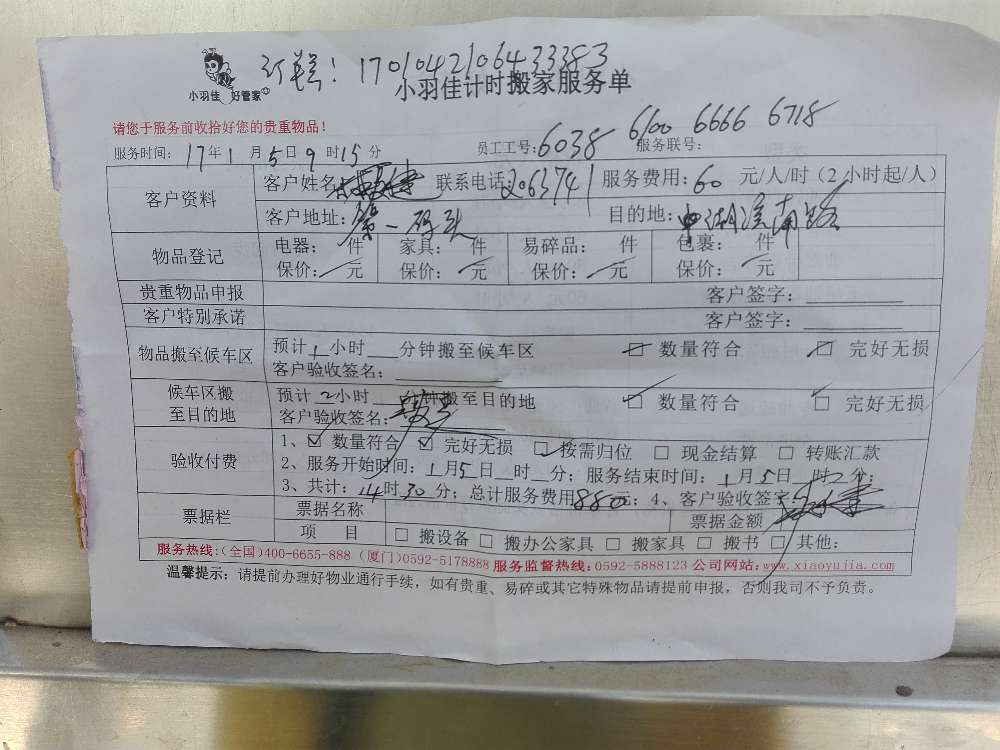 订单号：1701042106433383
小羽佳 好管家
小羽佳计时搬家服务单
请您于服务前收拾好您的贵重物品！
服务时间：17年1月5日9时15分 员工工号：6038 服务联号： 6100 6666 6718
客户资料 客户姓名： 联系电话：2063741 服务费用：60元/人/时（2小时起/人）
客户地址：第一码头 目的地：湖滨南路
物品登记 电器： 件 家具： 件 易碎品： 件 包裹： 件
保价： 元 保价： 元 保价： 元 保价： 元
贵重物品申报 客户签字：
客户特别承诺 客户签字：
物品搬至候车区 预计1小时 分钟搬至候车区 数量符合 完好无损
客户验收签名：
候车区搬至目的地 预计2小时 分钟搬至目的地 数量符合 完好无损
客户验收签名：
验收付费 1、数量符合 完好无损 按需归位 现金结算 转账汇款
2、服务开始时间：1月5日 时 分；服务结束时间：1月5日 时 分；
3、共计：14时30分；总计服务费用880元；4、客户验收签字：
票据栏 票据名称 票据金额
项 目 搬设备 搬办公家具 搬家具 搬书 其他：
服务热线：(全国)400-6655-888 (厦门)0592-5178888 服务监督热线：0592-5888123 公司网站：www.xiaoyujia.com
温馨提示：请提前办理好物业通行手续，如有贵重、易碎或其它特殊物品请提前申报，否则我司不予负责。